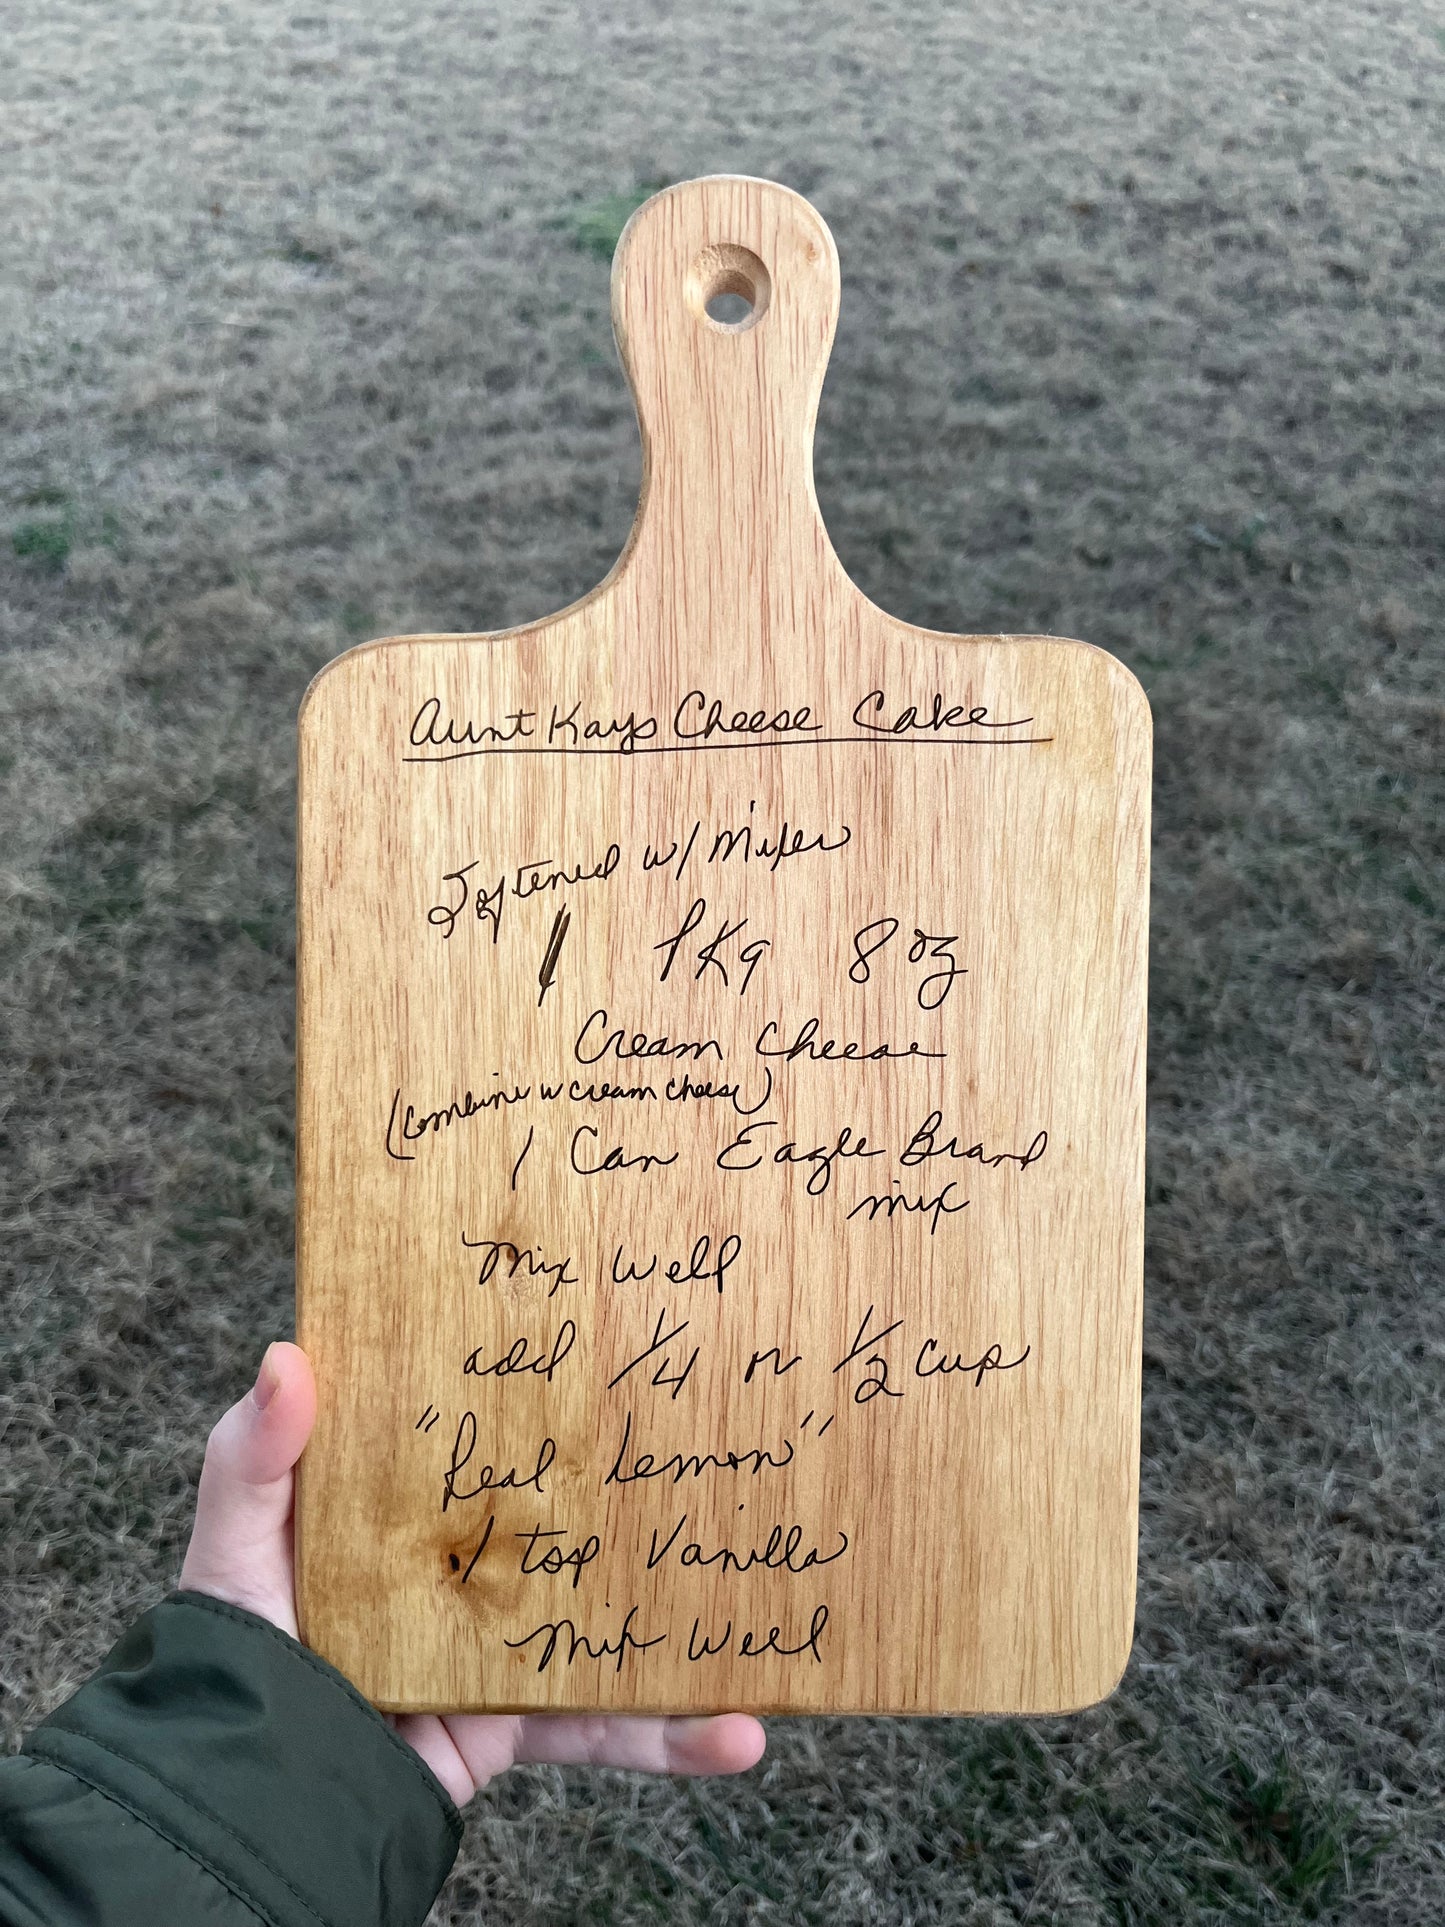 Aunt Kays Cheese Cake
Softened w/ Mixer
1 PKg 8 oz
Cream Cheese
(Combine w cream cheese)
1 Can Eagle Brand
mix
Mix Well
add 1/4 or 1/2 cup
"Real Lemon"
1 tsp Vanilla
Mix Well